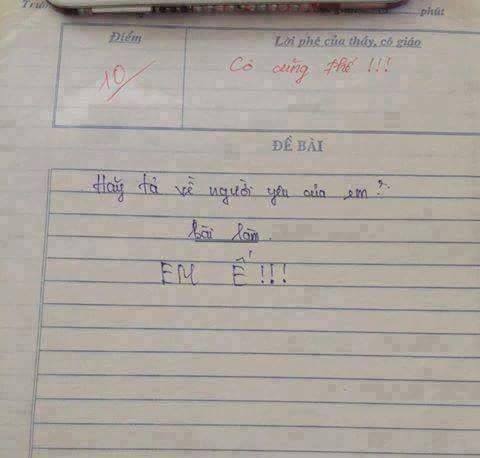 Trườ
phút
Điểm
Lời phê của thầy, cô giáo
10
Cô cũng thế !!!
ĐỀ BÀI
Hãy tả về người yêu của em?
bài làm.
EM Ế!!!